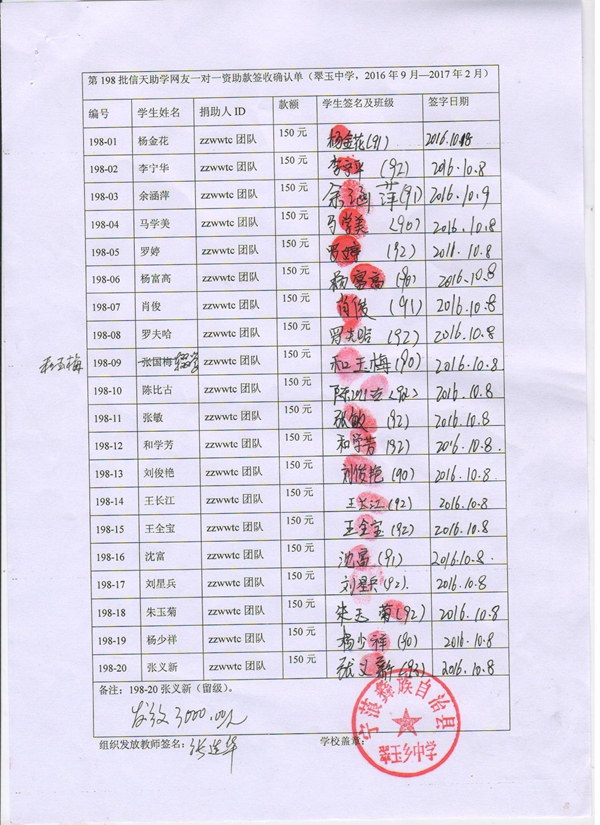 第 198 批信天助学网友一对一资助款签收确认单（翠玉中学，2016 年 9 月—2017 年 2 月）
编号 学生姓名 捐助人 ID 款额 学生签名及班级 签字日期
198-01 杨金花 zzwwtc 团队 150 元 杨金花(91) 2016.10.8
198-02 李宁华 zzwwtc 团队 150 元 李宁华 (92) 2016.10.8
198-03 余涵萍 zzwwtc 团队 150 元 余涵萍(91) 2016.10.9
198-04 马学美 zzwwtc 团队 150 元 马学美 (90) 2016.10.8
198-05 罗婷 zzwwtc 团队 150 元 罗婷 (92) 2016.10.8
198-06 杨富高 zzwwtc 团队 150 元 杨富高 (90) 2016.10.8
198-07 肖俊 zzwwtc 团队 150 元 肖俊 (91) 2016.10.8
198-08 罗夫哈 zzwwtc 团队 150 元 罗夫哈 (92) 2016.10.8
和玉梅 198-09 张国梅 zzwwtc 团队 150 元 和玉梅(90) 2016.10.8
198-10 陈比古 zzwwtc 团队 150 元 陈比古(92) 2016.10.8
198-11 张敏 zzwwtc 团队 150 元 张敏 (92) 2016.10.8
198-12 和学芳 zzwwtc 团队 150 元 和学芳 (92) 2016.10.8
198-13 刘俊艳 zzwwtc 团队 150 元 刘俊艳(90) 2016.10.8
198-14 王长江 zzwwtc 团队 150 元 王长江(92) 2016.10.8
198-15 王全宝 zzwwtc 团队 150 元 王全宝(92) 2016.10.8
198-16 沈富 zzwwtc 团队 150 元 沈富 (91) 2016.10.8.
198-17 刘星兵 zzwwtc 团队 150 元 刘星兵(92). 2016.10.8
198-18 朱玉菊 zzwwtc 团队 150 元 朱玉菊(92) 2016.10.8
198-19 杨少祥 zzwwtc 团队 150 元 杨少祥 (90) 2016.10.8
198-20 张义新 zzwwtc 团队 150 元 张义新(92) 2016.10.8
备注：198-20 张义新（留级）。
发放3000.00元
组织发放教师签名： 学校盖章：
宁蒗彝族自治县
翠玉乡中学